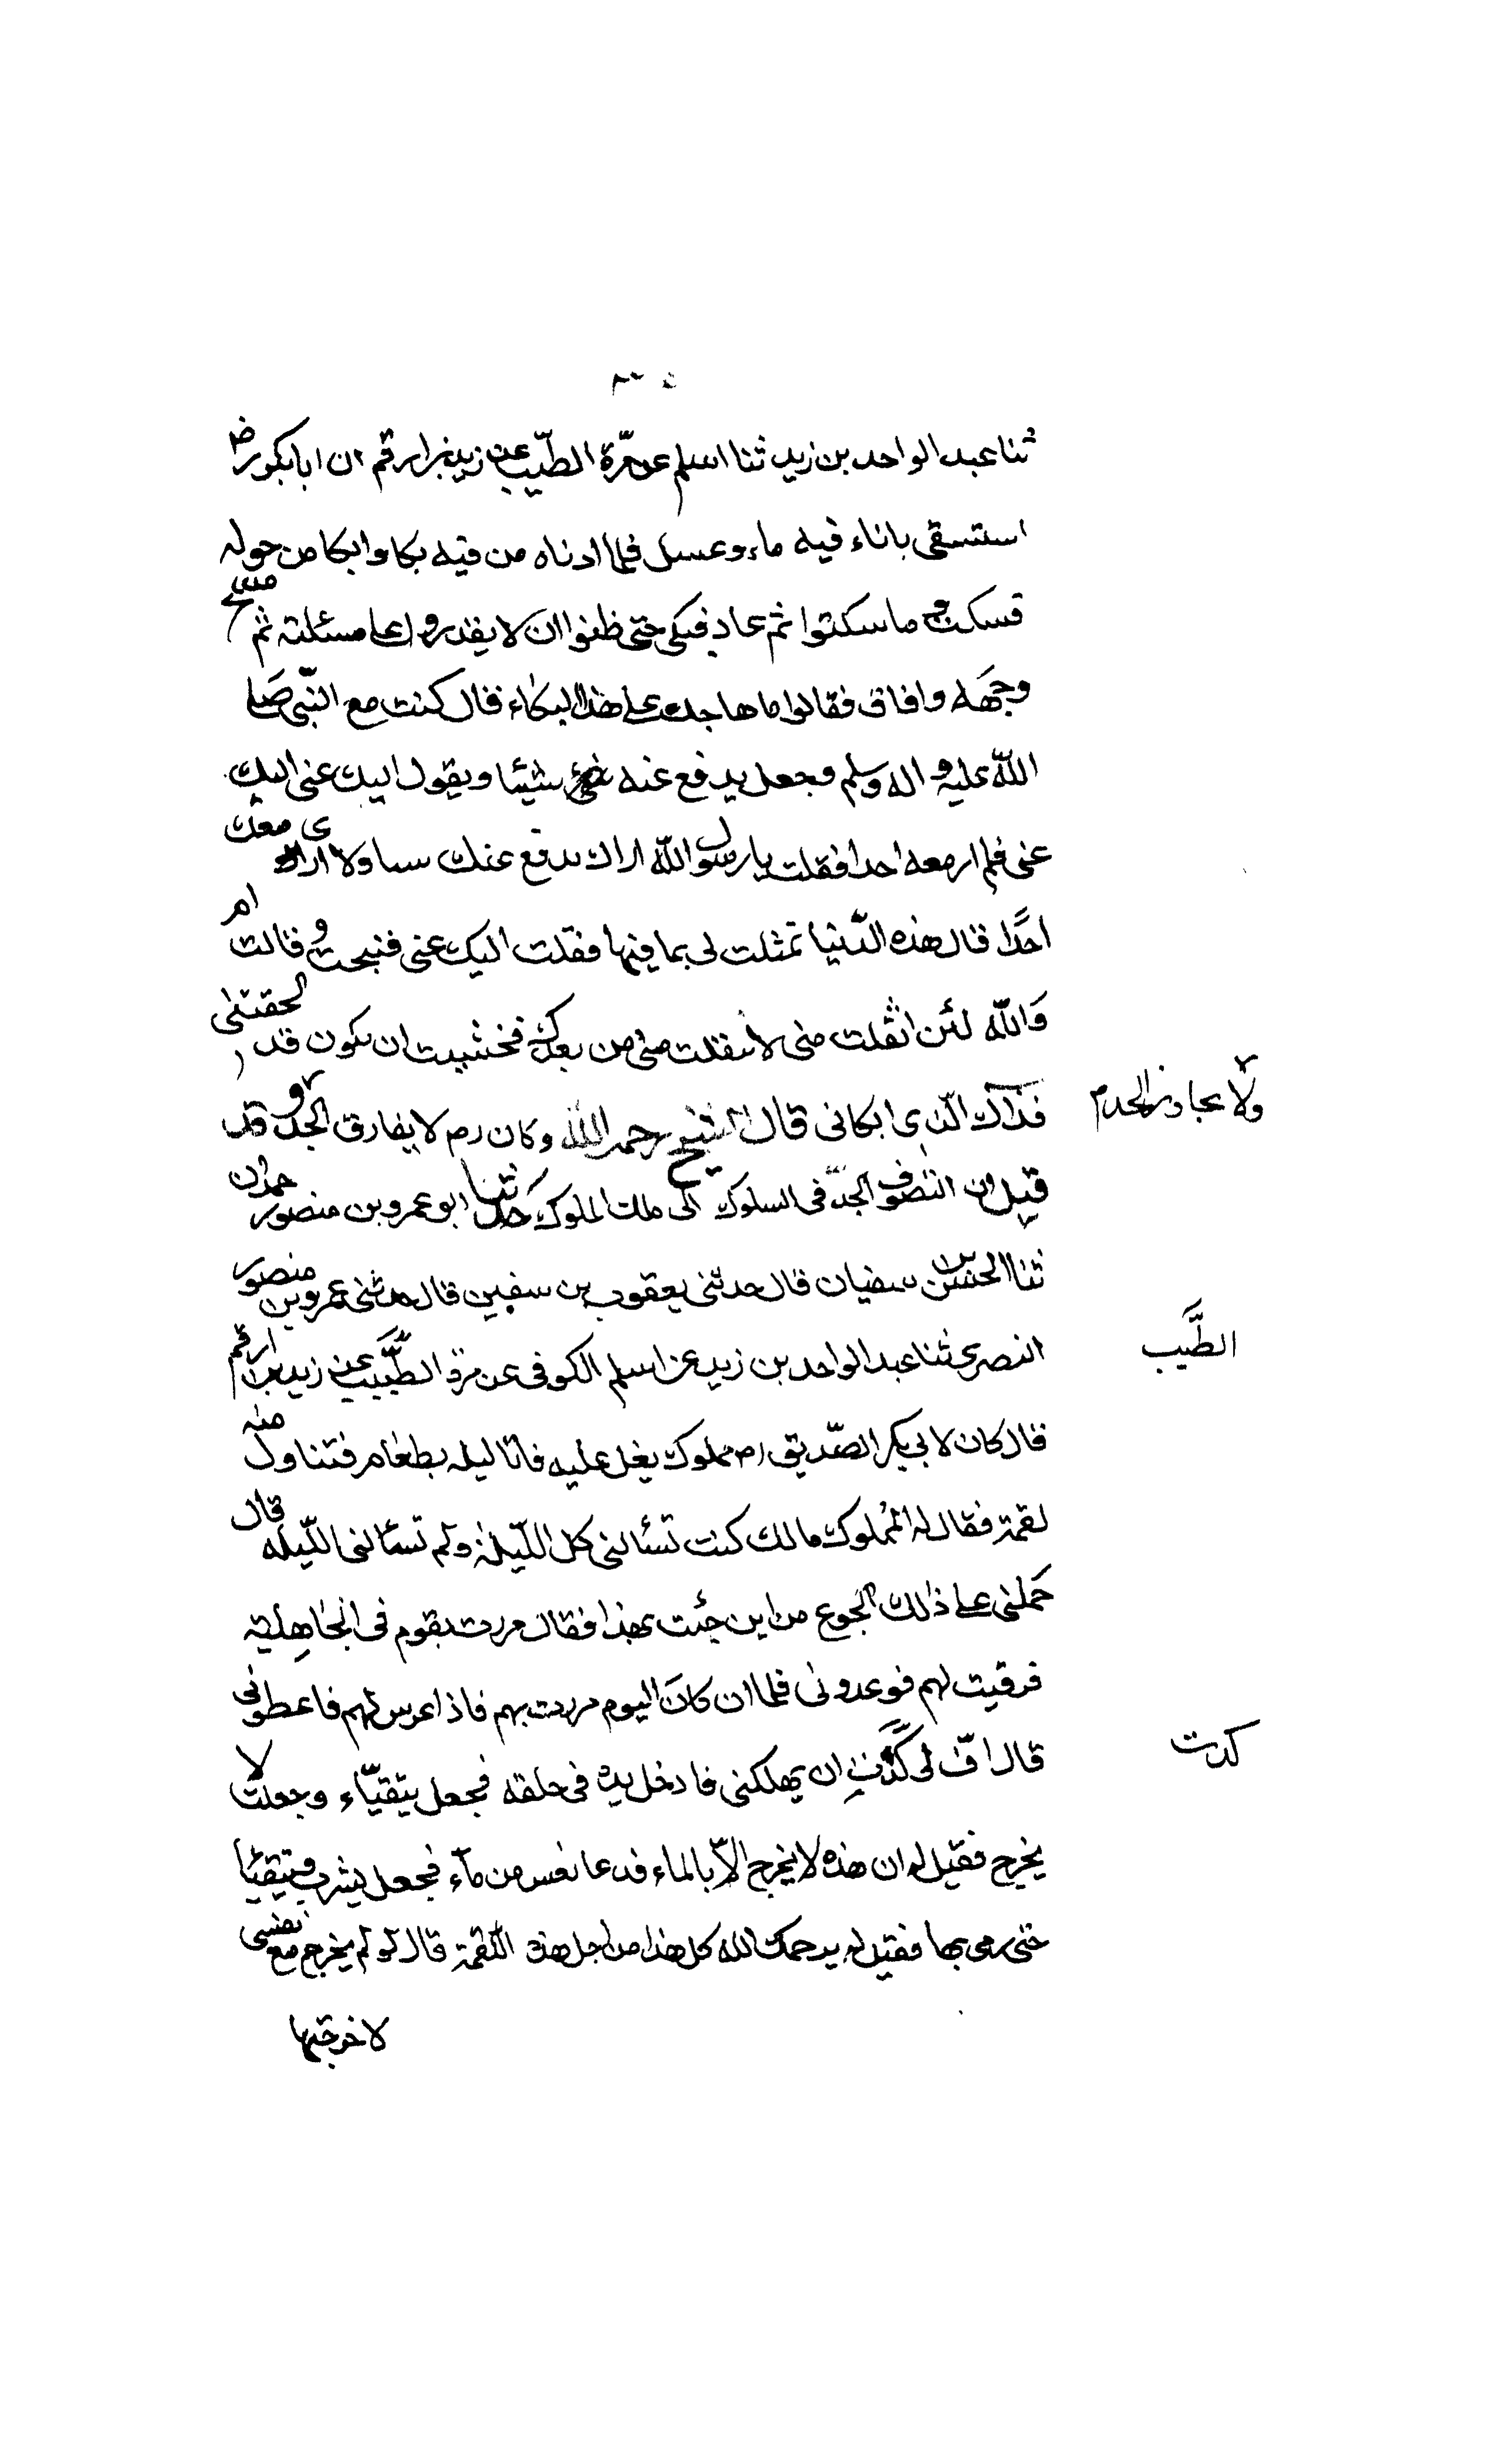 ثنا عبد الواحد بن زيد ثنا اسلم عن مرّة الطيّب عن زيد بن ارقم ان ابا بكر رض
استسقى باناء فيه ماء وعسل فلما ادناه من فيه بكا وابكا من حوله
فسكت وما سكتوا ثم عاد فبكى حتى ظنوا ان لا يقدروا على مسئلته ثم مسح
وجهه وافاق فقالوا ما هاجك على هذا البكاء قال كنت مع النّبى صلى
اللّه عليه و اله وسلم وجعل يدفع عنه شيئا ويقول اليك عنى اليك
عنى فلم ار معه احدا فقلت يا رسول اللّه اراك تدفع عنك سيا ولا ارى معك
احدًا قال هذه الدّنيا تمثلت لى بما فيها فقلت اليك عنى فتنحت و قالت ام
وَاللّه لئن انفلت منى لا ينفلت منى من بعدك فخشيت ان تكون قد لحقتنى
فذاك الّذى ابكانى قال الشيخ رحمه اللّه وكان رض لا يفارق الجد و قد
ولا يجاوز الحد م
قيل ان التصوف الجدّ فى السلوك الى ملك الملوك حدثنا ابو عمرو بن حمدان
ثنا الحسن بن سفيان قال حدثنى يعقوب بن سفين قال حدثنى عمرو بن منصور
النصرى ثنا عبد الواحد بن زيد عن اسلم الكوفى عن مرة الطَّيّب عن زيد بن ارقم
الطَّيب
قال كان لابى بكر الصّديق رض مملوك يغل عليه فاتا ليله بطعام فتناول منه
لقمة فقال له المملوك مالك كنت تسئالنى كل اللّيلة ولم تسئالنى اللّيله قال
حملنى على ذلك الجوع من اين جئت بهذا فقال مررت بقوم فى الجاهلية
فرقيت لهم فوعدونى فلما ان كان اليوم مررت بهم فاذا عرس لهم فاعطونى
قال افّ لك كدت ان يهلكنى فادخل يده فى حلقه فجعل يتقيّاء وجعلت لا
كدت
يخرج فقيل له ان هذه لا يخرج الاّ بالماء فدعا بعس من ماء فجعل يشرب ويتقيّا
حتى رمى بها فقيل له يرحمك الله كل هذا من اجل هذه اللّقمة قال لو لم يخرج مع نفسى
لاخرجتها